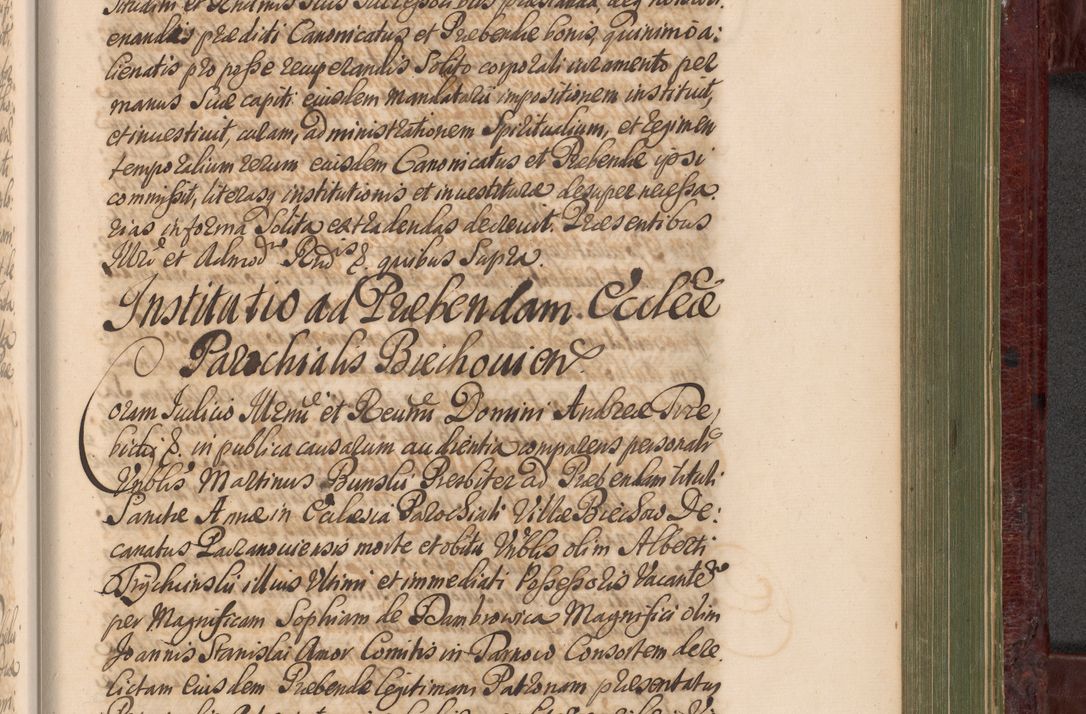 enandas prædicti Canonicatus et Præbendæ bonis, quinimo a:
lienatis pro posse recuperandis Solito corporali iuramento per
manus Suæ capiti eiusdem mandatarii impositionem instituit,
et inuestiuit, curam, administrationem Spiritualium, et regimen
temporalium rerum eiusdem Canonicatus et Præbendæ ipsi
commisit, literasq institutionis et inuestituræ desuper necessa
rias in forma Solita extradendas decreuit. Præsentibus
Illri et Admod Rndis &. quibus Supra.
Institutio ad Præbendam Ecclæ
Parochialis Biechouien
Coram Iudicio Illrmi et Reuermi Domini Andreæ Trze,
bicki &. in publica causarum audientia comparens personalr
Vnblis Martinus Bunski Presbiter ad Præbendam tituli
Sanctæ Annæ in Ecclesia Parochiali Villæ Biechow De:
canatus Pacanouiensis morte et obitu Vnblis olim Alberti
Trychinskii illius Vltimi et immediati Possessoris Vacantem
per Magnificam Sophiam de Dambrowica Magnifici olim
Joannis Stanislai Amor Comitis in Tarnow Consortem dere
lictam eiusdem Præbendæ legitimam Patronam præsentatus